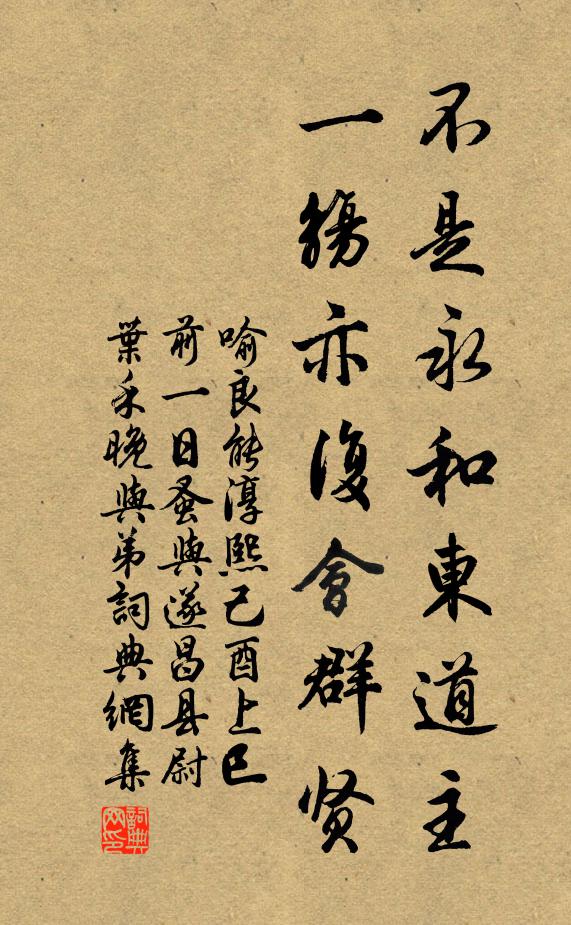 不是永和東道主
一觴亦復會群贤
喻良能淳熙己酉上巳
前一日蚤與遂昌县尉
葉禾晚與弟詞典網集
詞典网印